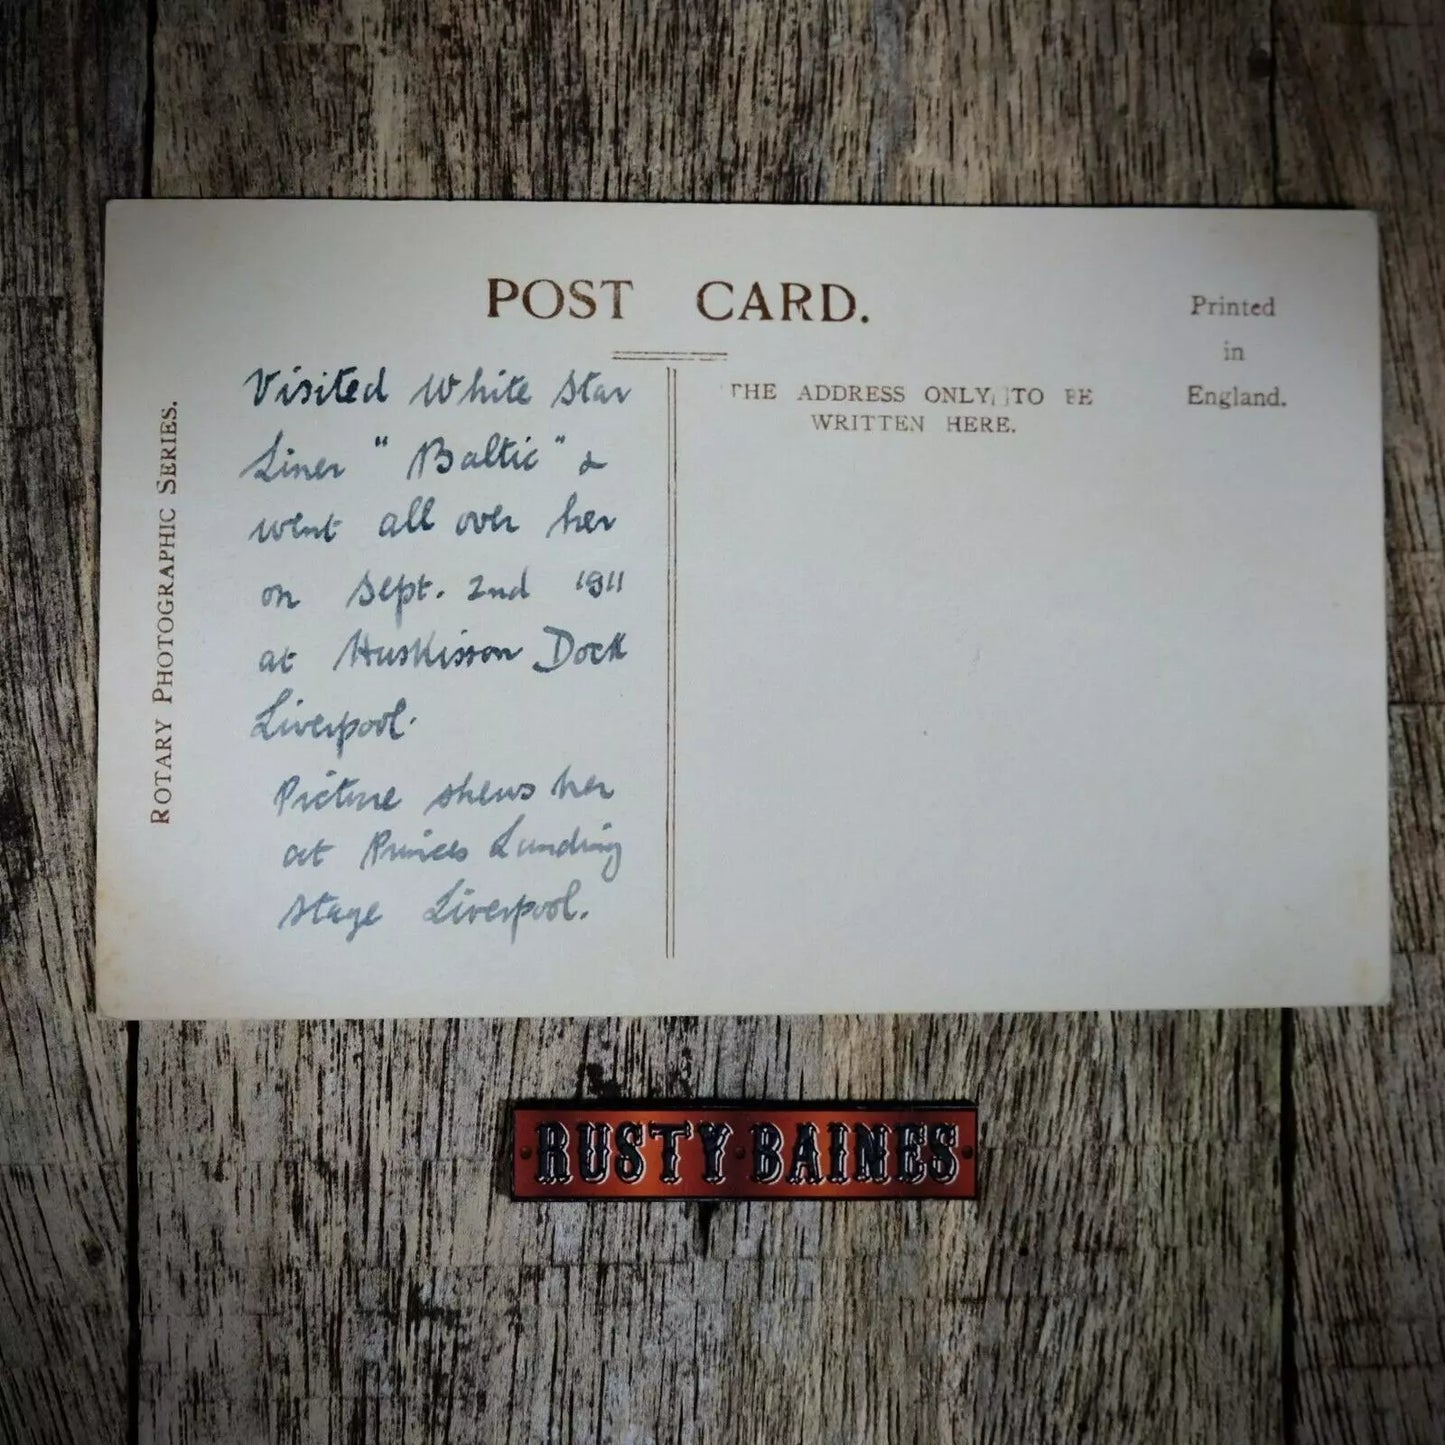 POST CARD.
Printed
in
England.
ROTARY PHOTOGRAPHIC SERIES.
Visited White Star
Liner "Baltic" &
went all over her
on Sept. 2nd 1911
at Huskisson Dock
Liverpool.
Picture shews her
at Princes Landing
stage Liverpool.
THE ADDRESS ONLY TO BE
WRITTEN HERE.
RUSTY BAINES